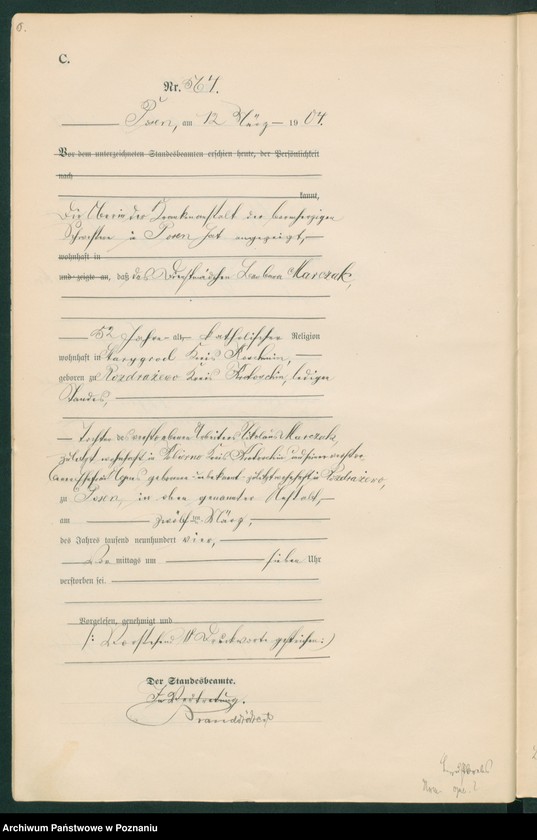 C.
Nr. 564.
Posen, am 12 März 1904.
Vor dem unterzeichneten Standesbeamten erschien heute, der Persönlichkeit
nach
kannt,
Die Oberin der Krankenanstalt der barmherzigen
Schwestern in Posen hat angezeigt,
wohnhaft in
und zeigte an, daß das Dienstmädchen Barbara Marczak,
52 Jahre alt, katholischer Religion
wohnhaft in Starygrod Kreis Koschmin,
geboren zu Rozdrażewo Kreis Krotoschin, ledigen
Standes,
Tochter des verstorbenen Arbeiters Nikolaus Marczak,
zuletzt wohnhaft in Kreis Krotoschin und seiner verstor
benen Ehefrau Agnes geborene unbekannt zuletzt wohnhaft in Rozdrażewo,
zu Posen, in oben genannter Anstalt,
am zwölften März,
des Jahres tausend neunhundert vier,
Vor mittags um sieben Uhr
verstorben sei.
Vorgelesen, genehmigt und
/: Vorstehend Druckworte gestrichen :/
Der Standesbeamte.
In Vertretung.
Archiwum Państwowe w Poznaniu